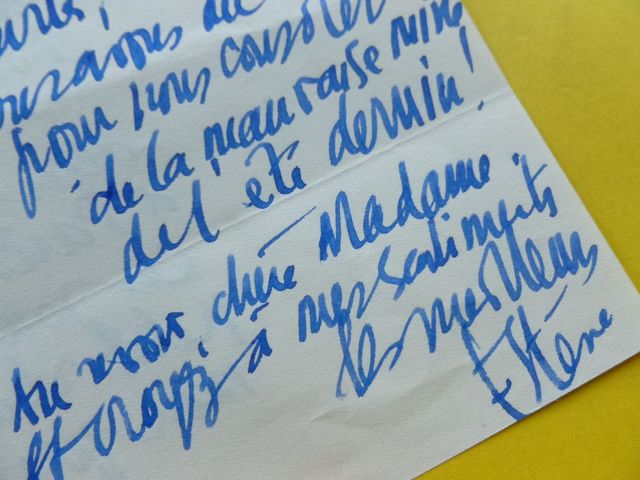 pour nous consoler
de la mauvaise mine
de l'été dernier!
Au revoir, chère Madame.
et croyez à mes sentiments
les meilleurs